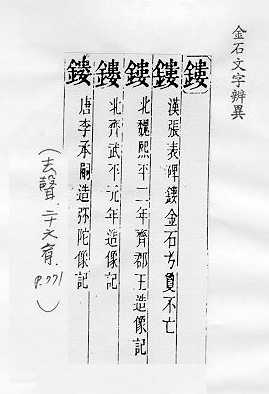 金石文字辨異
鏤
鏤 漢張表碑鏤金石兮負不亡
鏤 北魏熙平二年齊郡王造像記
鏤 北齊武平元年造像記
鏤 唐李承嗣造弥陀像記
(去聲.二十六宥.P.771)